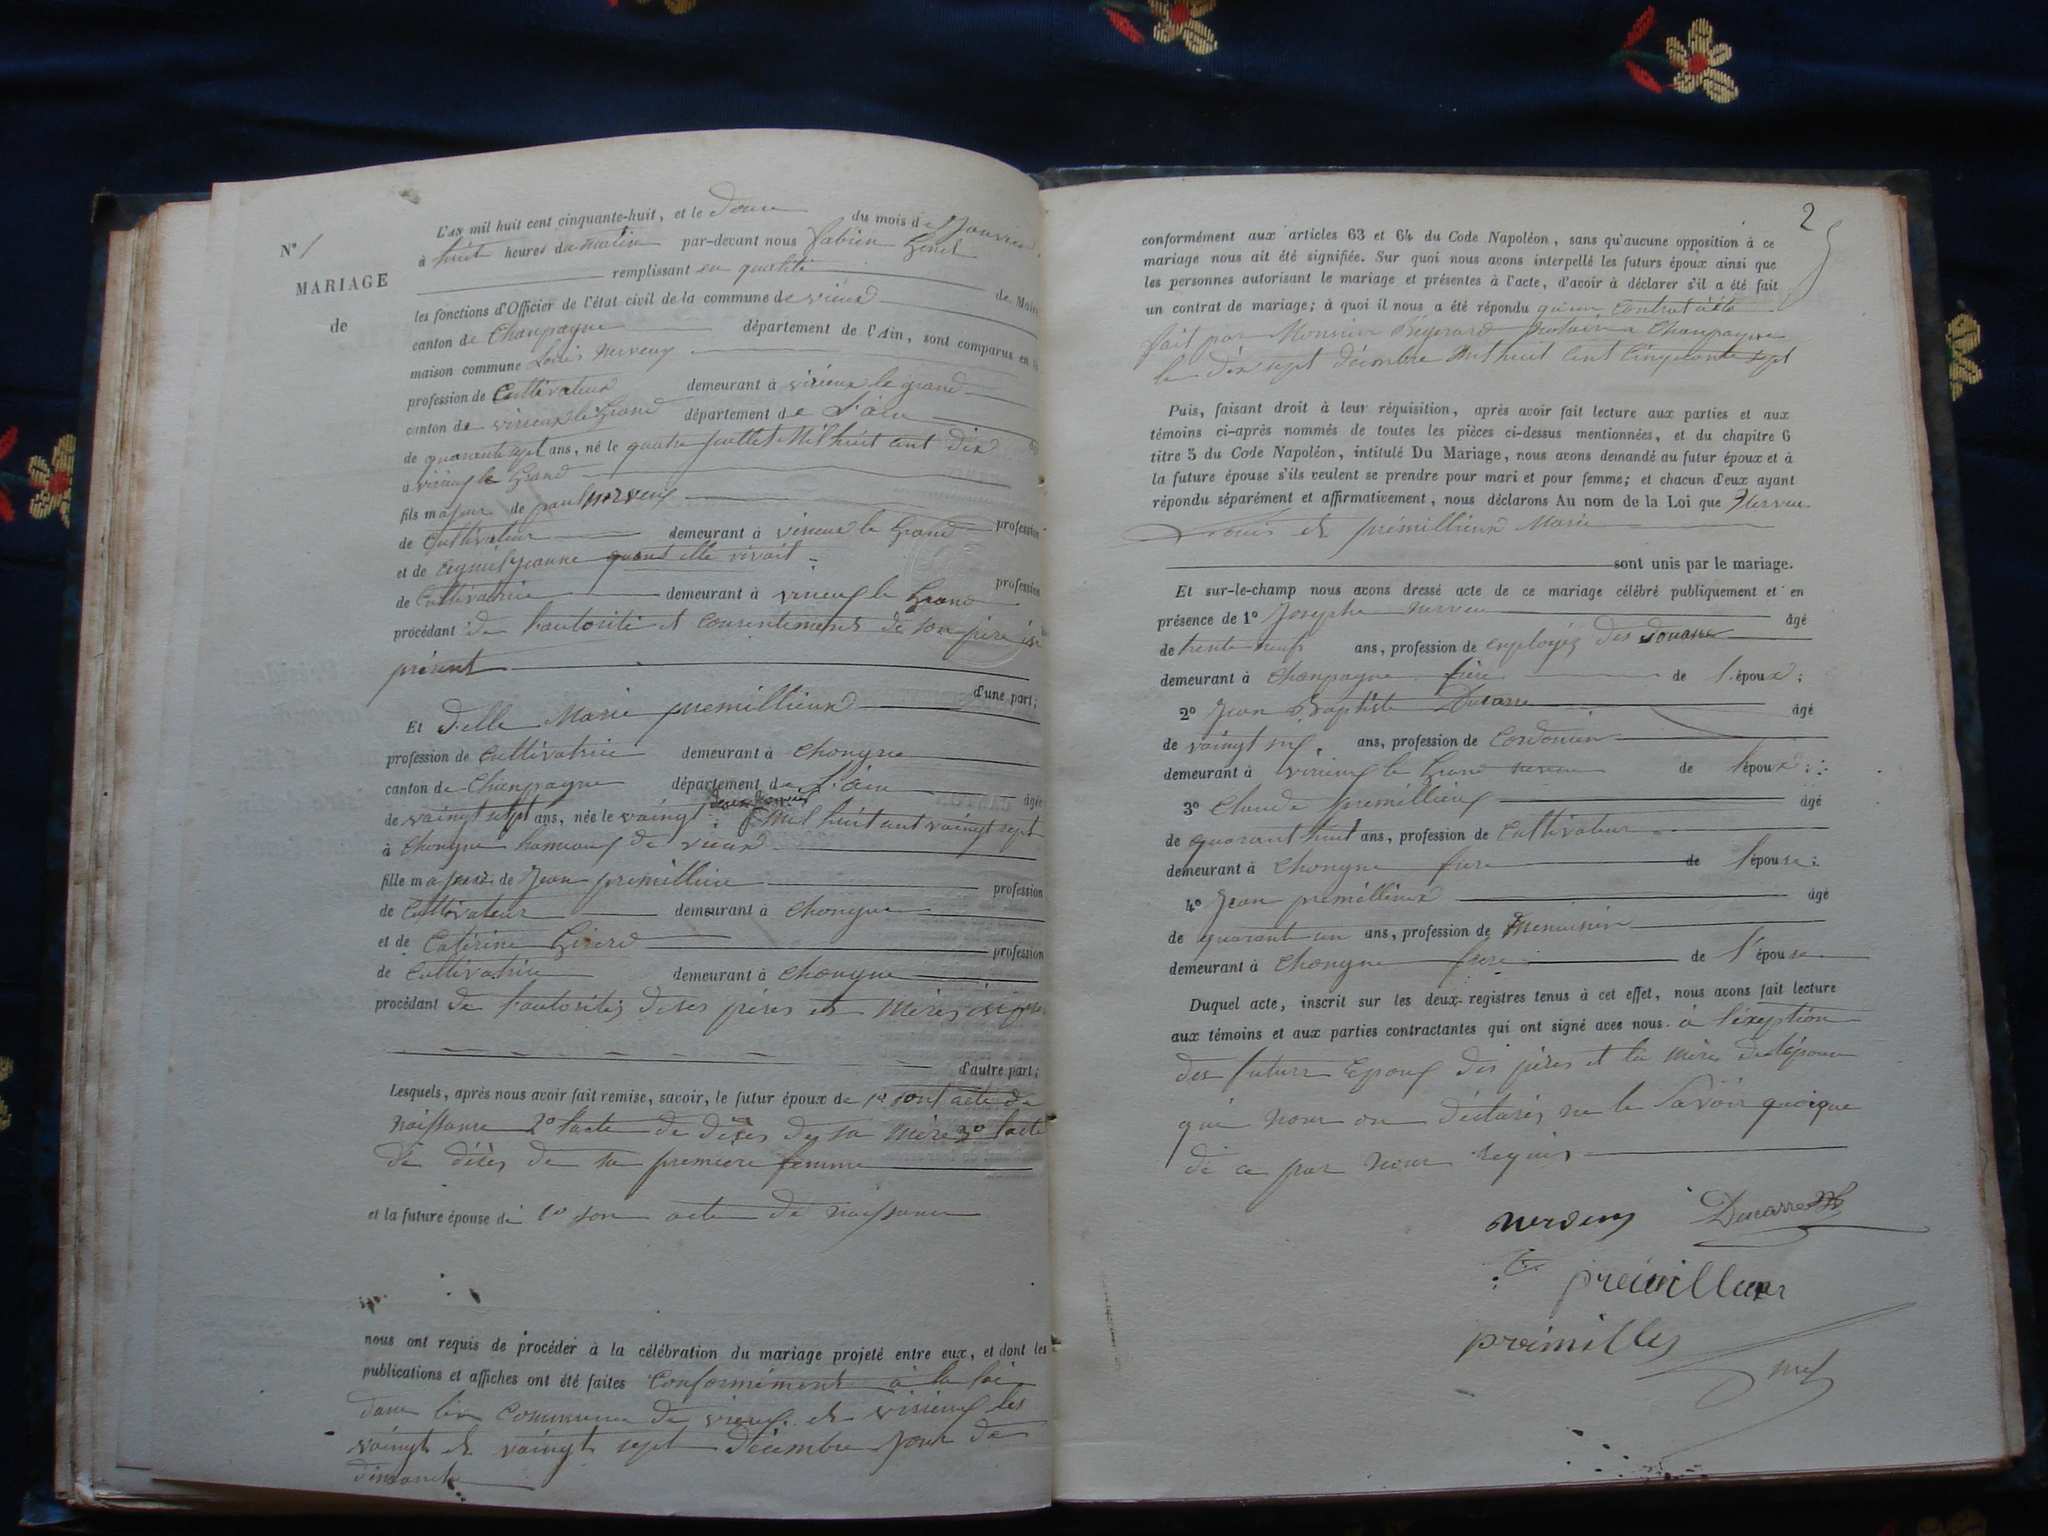 N° 1
MARIAGE
de
L'AN mil huit cent cinquante-huit, et le douze du mois de Janvier
à huit heures du matin par-devant nous fabien
remplissant en qualité de Maire
les fonctions d'Officier de l'état civil de la commune de vieux
canton de Champagne département de l'Ain, sont comparus en la
maison commune Louis nerveux
profession de Cultivateur demeurant à virieux le grand
canton de virieux le Grand département de L'ain
de quarante sept ans, né le quatre juillet Mil huit cent dix
a virieux le Grand
fils majeur de paul nerveux profession
de Cultivateur demeurant à virieux le Grand
et de Jeanne quand elle vivait profession
de Cultivatrice demeurant à virieux le Grand
procédant de l'autorité et consentement de son père ici
présent
d'une part;
Et delle Marie premillieux
profession de Cultivatrice demeurant à Chongne
canton de Champagne département de L'ain âgé
de vaingt sept ans, née le vaingt Mil huit cent vaingt sept
à Chongne hameaux de vieux
fille majeure de Jean premillieux profession
de Cultivateur demeurant à Chongne
et de Caterine Girerd profession
de Cultivatrice demeurant à Chongne
procédant de l'autorités de ses péres et méres
d'autre part;
Lesquels, après nous avoir fait remise, savoir, le futur époux de 1° sont acte de
naissance 2° l'acte de désès de sa mère 3° l'acte
de désès de sa premiere femme
et la future épouse de 1° son acte de naissance
nous ont requis de procéder à la célébration du mariage projeté entre eux, et dont les
publications et affiches ont été faites Conformément à la loi
dans les Commune de vieux et virieux les
vaingt et vaingt sept décembre jour de
dimanche
2
conformément aux articles 63 et 64 du Code Napoléon, sans qu'aucune opposition à ce
mariage nous ait été signifiée. Sur quoi nous avons interpellé les futurs époux ainsi que
les personnes autorisant le mariage et présentes à l'acte, d'avoir à déclarer s'il a été fait
un contrat de mariage; à quoi il nous a été répondu qu'un Contrat a été
fait par Monsieur notaire a Champagne
le dix sept décembre Mil huit Cent Cinquante sept
Puis, faisant droit à leur réquisition, après avoir fait lecture aux parties et aux
témoins ci-après nommés de toutes les pièces ci-dessus mentionnées, et du chapitre 6
titre 5 du Code Napoléon, intitulé Du Mariage, nous avons demandé au futur époux et à
la future épouse s'ils veulent se prendre pour mari et pour femme; et chacun d'eux ayant
répondu séparément et affirmativement, nous déclarons Au nom de la Loi que Nerveu
Louis et prémillieux Marie
sont unis par le mariage.
Et sur-le-champ nous avons dressé acte de ce mariage célébré publiquement et en
présence de 1° Josephe nerveu âgé
de trente neufs ans, profession de employéz des douane
demeurant à Champagne frère de l'époux;
2° Jean Baptiste Ducarre âgé
de vaingt ans, profession de Cordonier
demeurant à virieux le Grand neveu de l'époux;
3° Claude premillieux âgé
de quarant huit ans, profession de Cultivateur
demeurant à Chongne frere de l'épouse;
4° Jean premillieux âgé
de quarant un ans, profession de Menuisier
demeurant à Chongne frere de l'épouse
Duquel acte, inscrit sur les deux registres tenus à cet effet, nous avons fait lecture
aux témoins et aux parties contractantes qui ont signé avec nous. à l'exeption
des futurs Epoux des péres et la mère de l'épouse
qui nous on déclarés ne le Savoir quoique
de ce par nous Requis
nerveux Ducarre
premillieux
premilles